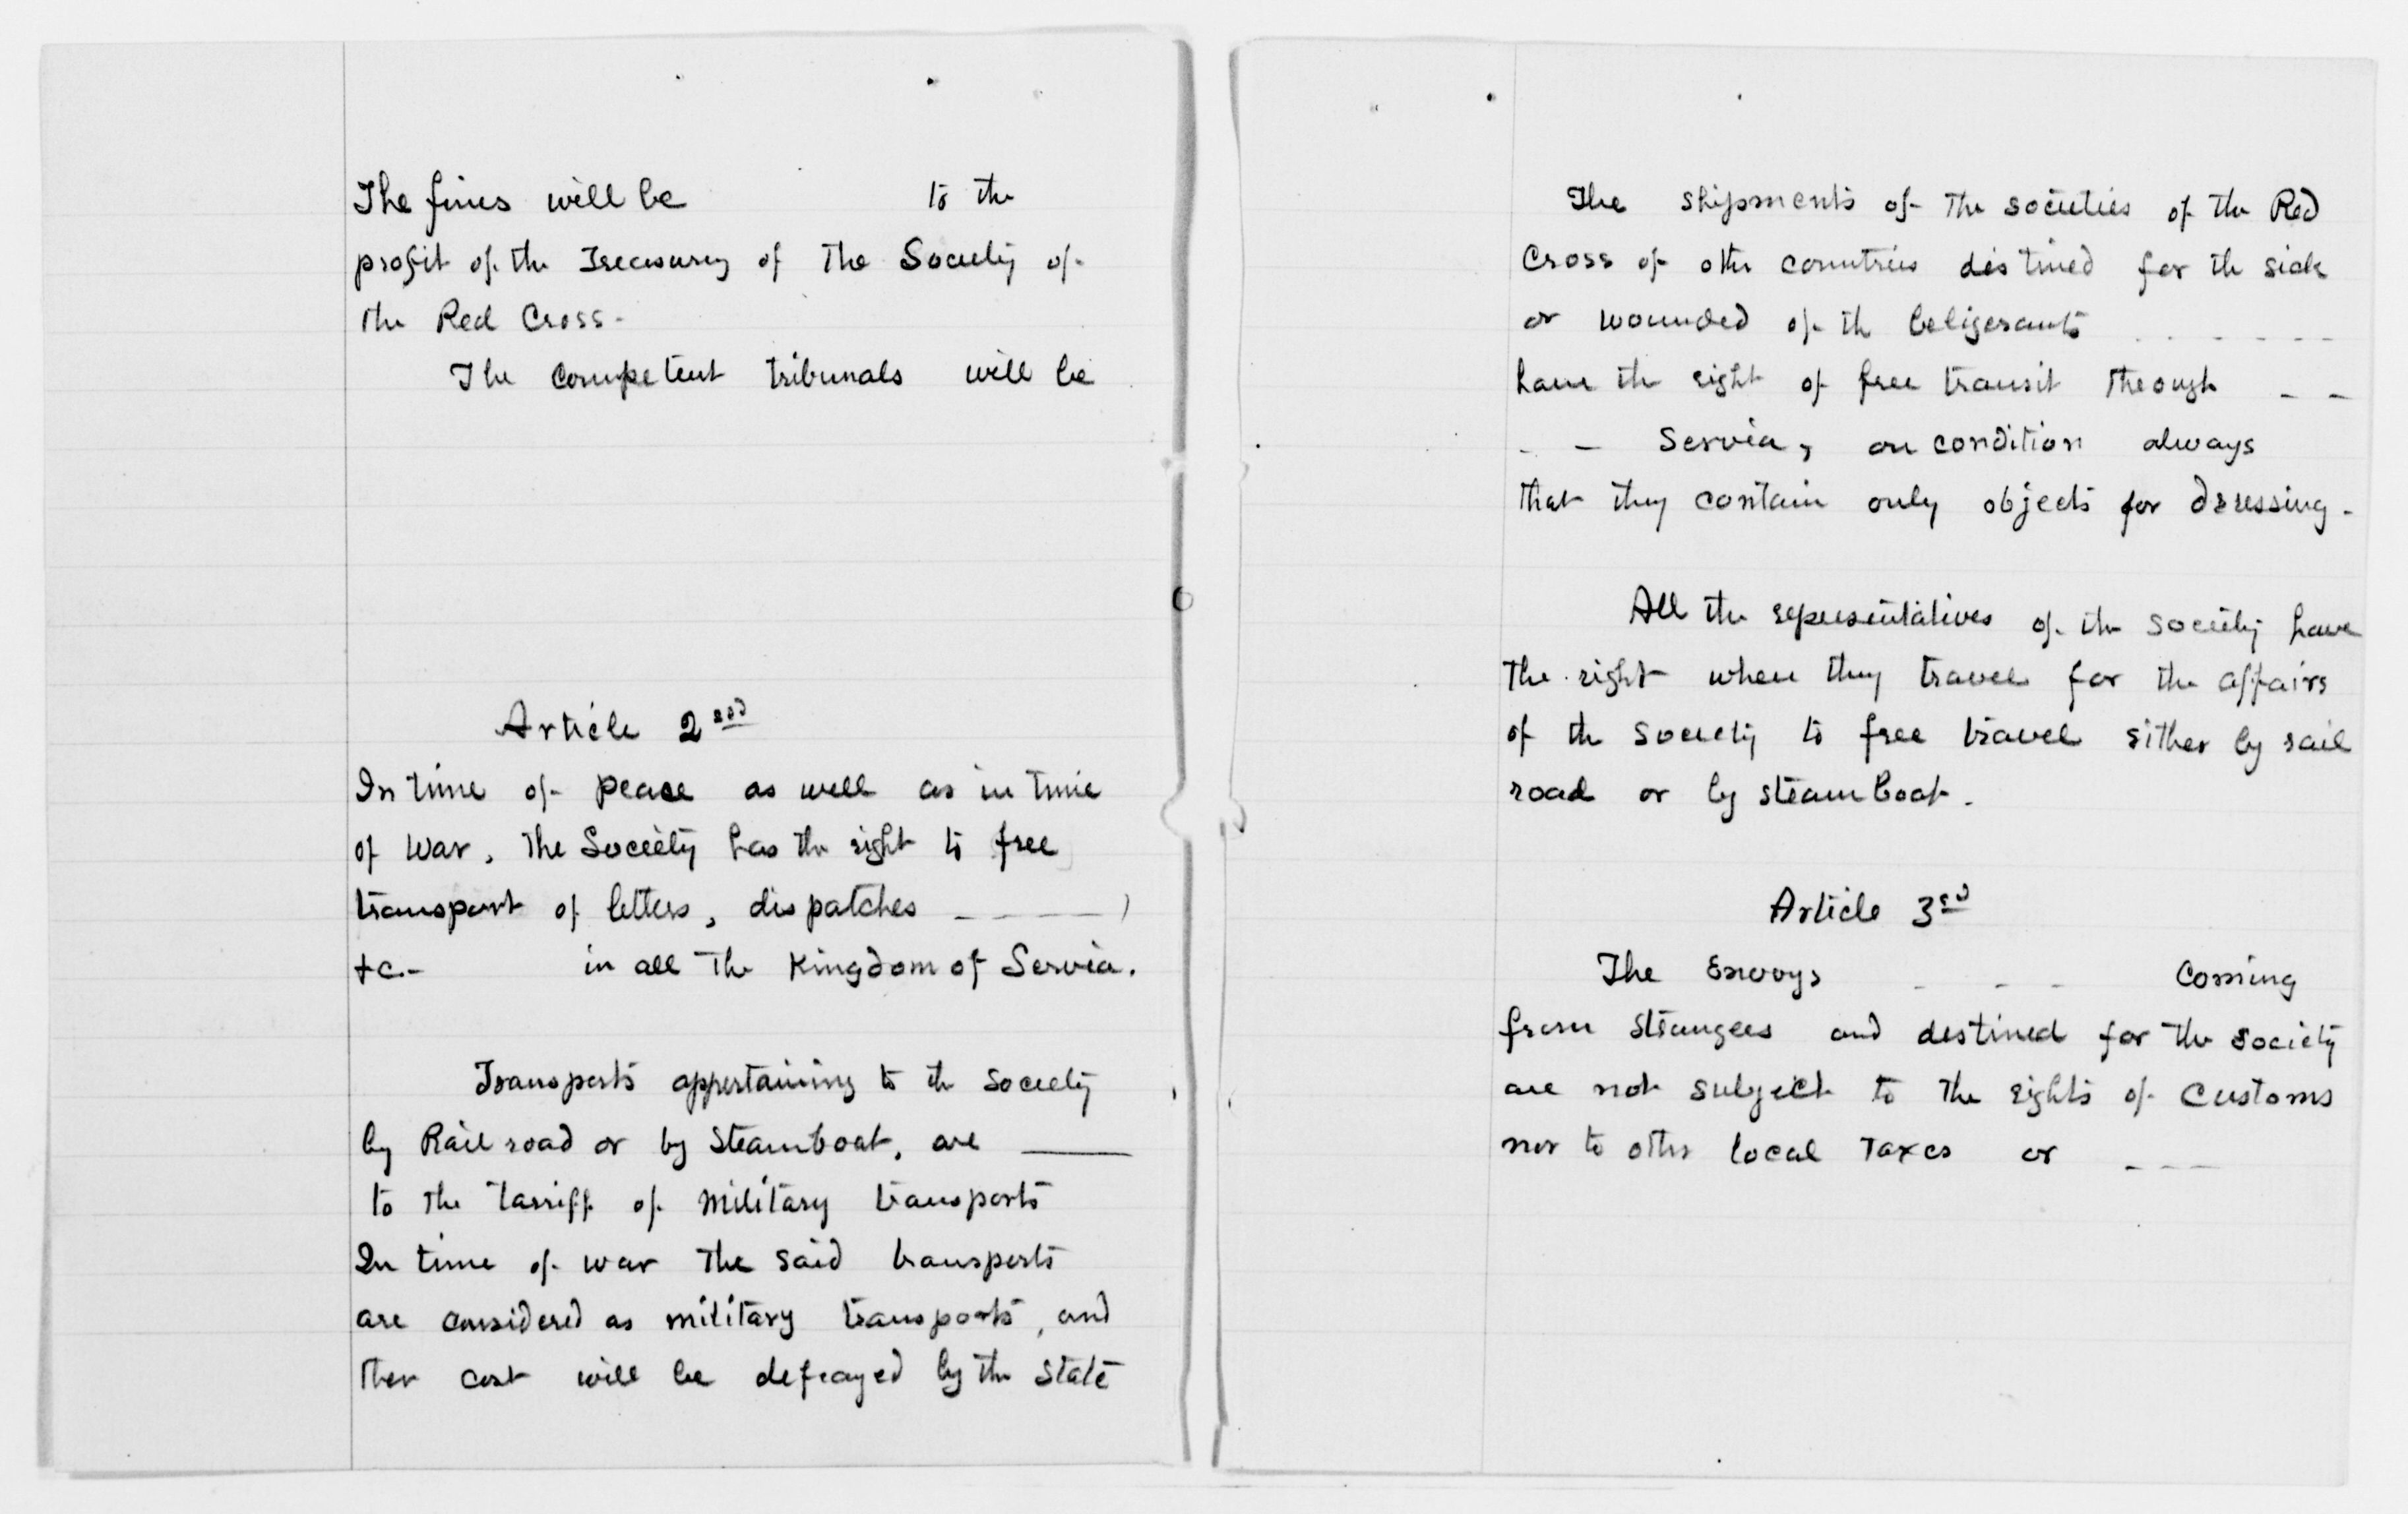 The fines will be to the
profit of the Treasurey of The Society of
the Red Cross-
The Competent tribunals will be
Article 2nd
In time of peace as well as in time
of War, The Society has the right to free
transport of letters, dispatches - - - - )
&c.- in all The Kingdom of Servia.
Transports appertaining to the Society
by Rail road or by Steamboat, are ———
to the tarriff of military transports
In time of war The said transports
are considered as military transports, and
ther cost will be defrayed by the State
The shipments of The societies of the Red
Cross of other countries destined for the sick
or wounded of th beligerants - - - - - -
have the right of free transit through - -
- - Servia, on condition always
that they contain only objects for dressing-
All the representatives of the Society have
The right when they travel for the affairs
of the Society to free travel either by rail
road or by steamboat.
Article 3rd
The Envoys - - - Coming
from Strangers and destined for the society
are not subject to The rights of Customs
nor to other local Taxes or - - -